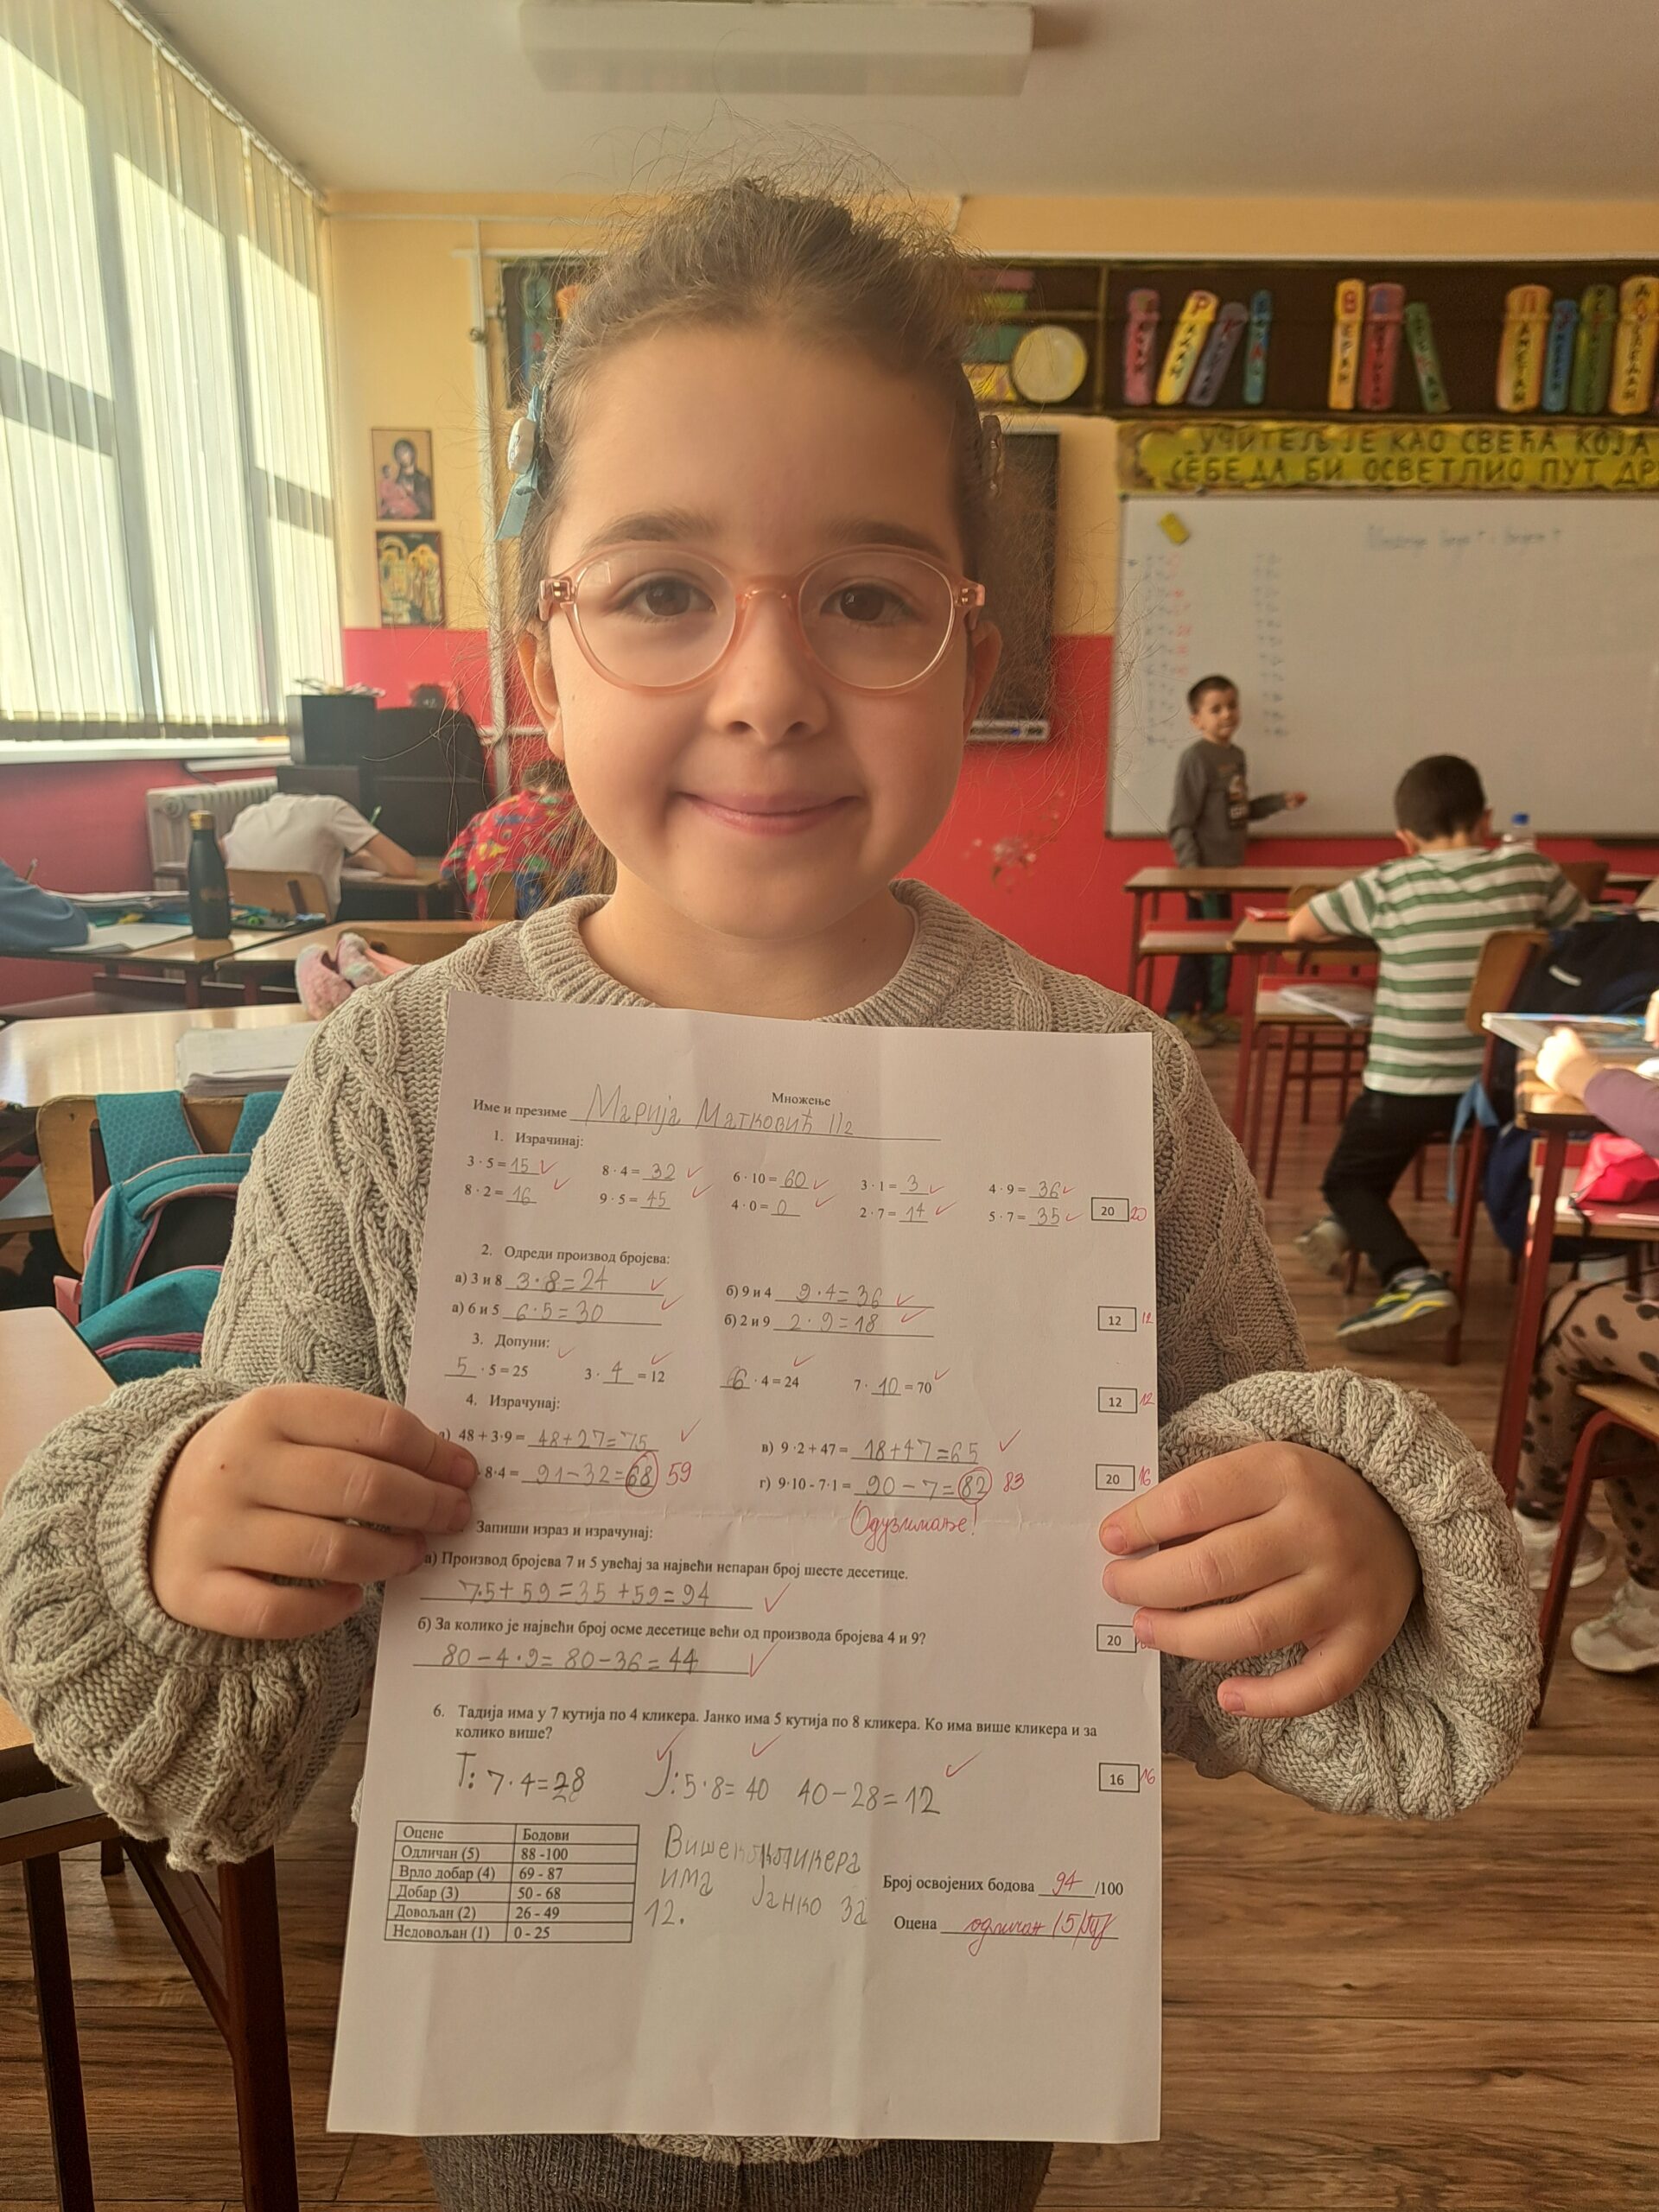 УЧИТЕЉ ЈЕ КАО СВЕЋА КОЈА
СЕБЕ ДА БИ ОСВЕТЛИО ПУТ ДР
Множење
Име и презиме Марија Матковић II2
1. Израчинај:
3 · 5 = 15 8 · 4 = 32 6 · 10 = 60 3 · 1 = 3 4 · 9 = 36
8 · 2 = 16 9 · 5 = 45 4 · 0 = 0 2 · 7 = 14 5 · 7 = 35 20 20
2. Одреди производ бројева:
а) 3 и 8 3·8=24 б) 9 и 4 9·4=36
а) 6 и 5 6·5=30 б) 2 и 9 2·9=18 12 12
3. Допуни:
5 · 5 = 25 3 · 4 = 12 6 · 4 = 24 7 · 10 = 70 12 12
4. Израчунај:
48 + 3·9 = 48+27=75 в) 9 ·2 + 47 = 18+47=65
8·4 = 91-32=68 59 г) 9·10 - 7·1 = 90-7=82 83 20 16
Одузимање!
Запиши израз и израчунај:
а) Производ бројева 7 и 5 увећај за највећи непаран број шесте десетице.
7·5+59=35+59=94
б) За колико је највећи број осме десетице већи од производа бројева 4 и 9? 20
80-4·9=80-36=44
6. Тадија има у 7 кутија по 4 кликера. Јанко има 5 кутија по 8 кликера. Ко има више кликера и за
колико више?
Т: 7·4=28 Ј: 5·8=40 40-28=12 16 16
Оцене Бодови
Одличан (5) 88 -100
Врло добар (4) 69 - 87
Добар (3) 50 - 68
Довољан (2) 26 - 49
Недовољан (1) 0 - 25
Више кликера
има Јанко за
12.
Број освојених бодова 94 /100
Оцена одличан (5)